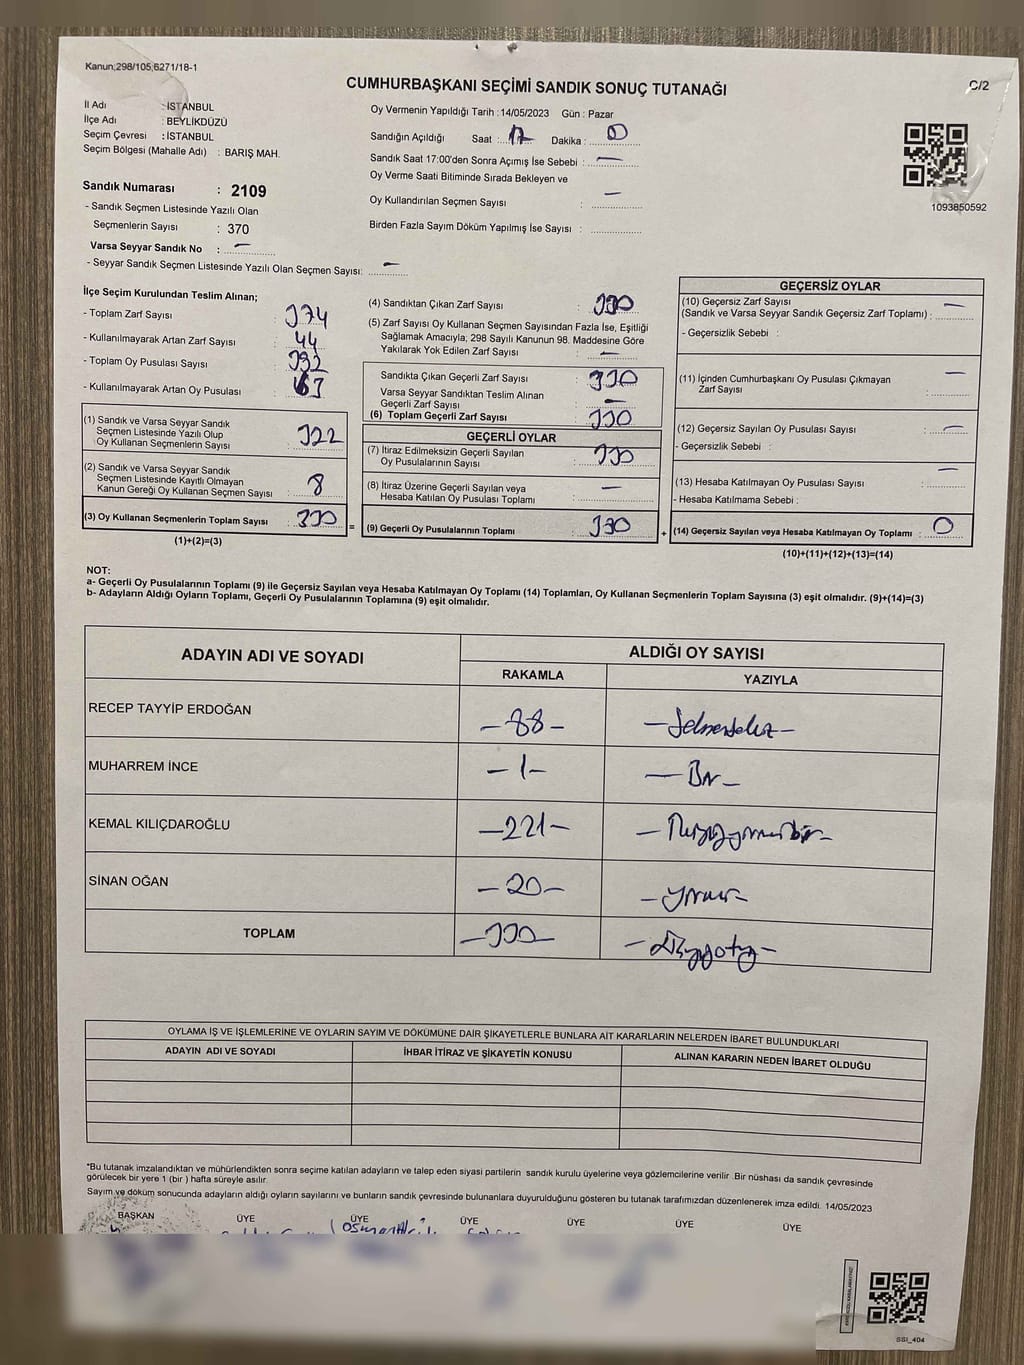 Kanun;298/105;6271/18-1
CUMHURBAŞKANI SEÇİMİ SANDIK SONUÇ TUTANAĞI
C/2
İl Adı : İSTANBUL
İlçe Adı : BEYLİKDÜZÜ
Seçim Çevresi : İSTANBUL
Seçim Bölgesi (Mahalle Adı) : BARIŞ MAH.
Oy Vermenin Yapıldığı Tarih : 14/05/2023 Gün : Pazar
Sandığın Açıldığı Saat : 17 Dakika : 0
Sandık Saat 17:00'den Sonra Açımış İse Sebebi : —
Oy Verme Saati Bitiminde Sırada Bekleyen ve
Oy Kullandırılan Seçmen Sayısı : —
Birden Fazla Sayım Döküm Yapılmış İse Sayısı :
1093850592
Sandık Numarası : 2109
- Sandık Seçmen Listesinde Yazılı Olan
Seçmenlerin Sayısı : 370
Varsa Seyyar Sandık No : —
- Seyyar Sandık Seçmen Listesinde Yazılı Olan Seçmen Sayısı: —
İlçe Seçim Kurulundan Teslim Alınan;
- Toplam Zarf Sayısı : 374
- Kullanılmayarak Artan Zarf Sayısı : 44
- Toplam Oy Pusulası Sayısı : 392
- Kullanılmayarak Artan Oy Pusulası :
(1) Sandık ve Varsa Seyyar Sandık
Seçmen Listesinde Yazılı Olup
Oy Kullanan Seçmenlerin Sayısı : 322
(2) Sandık ve Varsa Seyyar Sandık
Seçmen Listesinde Kayıtlı Olmayan
Kanun Gereği Oy Kullanan Seçmen Sayısı : 8
(3) Oy Kullanan Seçmenlerin Toplam Sayısı : 330 =
(1)+(2)=(3)
(4) Sandıktan Çıkan Zarf Sayısı : 330
(5) Zarf Sayısı Oy Kullanan Seçmen Sayısından Fazla İse, Eşitliği
Sağlamak Amacıyla; 298 Sayılı Kanunun 98. Maddesine Göre
Yakılarak Yok Edilen Zarf Sayısı : —
Sandıkta Çıkan Geçerli Zarf Sayısı : 330
Varsa Seyyar Sandıktan Teslim Alınan
Geçerli Zarf Sayısı : —
(6) Toplam Geçerli Zarf Sayısı : 330
GEÇERLİ OYLAR
(7) İtiraz Edilmeksizin Geçerli Sayılan
Oy Pusulalarının Sayısı : 330
(8) İtiraz Üzerine Geçerli Sayılan veya
Hesaba Katılan Oy Pusulası Toplamı : —
(9) Geçerli Oy Pusulalarının Toplamı : 330 +
GEÇERSİZ OYLAR
(10) Geçersiz Zarf Sayısı
(Sandık ve Varsa Seyyar Sandık Geçersiz Zarf Toplamı) : —
- Geçersizlik Sebebi :
(11) İçinden Cumhurbaşkanı Oy Pusulası Çıkmayan
Zarf Sayısı : —
(12) Geçersiz Sayılan Oy Pusulası Sayısı : —
- Geçersizlik Sebebi :
(13) Hesaba Katılmayan Oy Pusulası Sayısı : —
- Hesaba Katılmama Sebebi :
(14) Geçersiz Sayılan veya Hesaba Katılmayan Oy Toplamı : 0
(10)+(11)+(12)+(13)=(14)
NOT:
a- Geçerli Oy Pusulalarının Toplamı (9) ile Geçersiz Sayılan veya Hesaba Katılmayan Oy Toplamı (14) Toplamları, Oy Kullanan Seçmenlerin Toplam Sayısına (3) eşit olmalıdır. (9)+(14)=(3)
b- Adayların Aldığı Oyların Toplamı, Geçerli Oy Pusulalarının Toplamına (9) eşit olmalıdır.
ADAYIN ADI VE SOYADI
ALDIĞI OY SAYISI
RAKAMLA YAZIYLA
RECEP TAYYİP ERDOĞAN -88- -Seksensekiz-
MUHARREM İNCE -1- -Bir-
KEMAL KILIÇDAROĞLU -221- -İkiyüzyirmibir-
SİNAN OĞAN -20- -yirmi-
TOPLAM -330- -üçyüzotuz-
OYLAMA İŞ VE İŞLEMLERİNE VE OYLARIN SAYIM VE DÖKÜMÜNE DAİR ŞİKAYETLERLE BUNLARA AİT KARARLARIN NELERDEN İBARET BULUNDUKLARI
ADAYIN ADI VE SOYADI İHBAR İTİRAZ VE ŞİKAYETİN KONUSU ALINAN KARARIN NEDEN İBARET OLDUĞU
*Bu tutanak imzalandıktan ve mühürlendikten sonra seçime katılan adayların ve talep eden siyasi partilerin sandık kurulu üyelerine veya gözlemcilerine verilir .Bir nüshası da sandık çevresinde
görülecek bir yere 1 (bir ) hafta süreyle asılır.
Sayım ve döküm sonucunda adayların aldığı oyların sayılarını ve bunların sandık çevresinde bulunanlara duyurulduğunu gösteren bu tutanak tarafımızdan düzenlenerek imza edildi. 14/05/2023
BAŞKAN ÜYE ÜYE ÜYE ÜYE ÜYE ÜYE
SSI_404